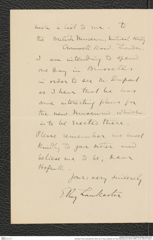 send a last to me - to
the British Museum Natural History
Cromwell Road. London.
I am intending to spend
one day in Brussels
in order to see the Dupont
as I hear that he has
some interesting plans for
the new Museum which
is to be erected there.
Please remember me most
kindly to your sister and
believe me to be, dear
Yours very sincerely
E Ray Lankester